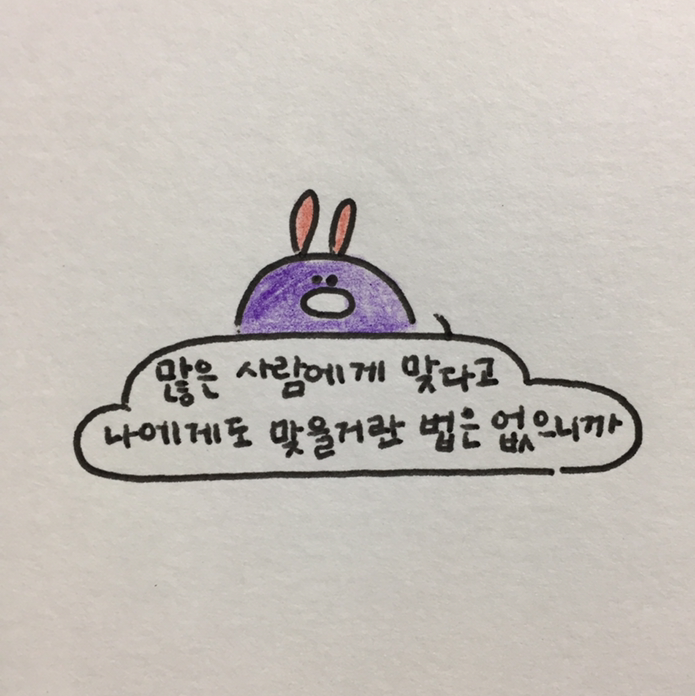 많은 사람에게 맞다고
나에게도 맞을거란 법은 없으니까